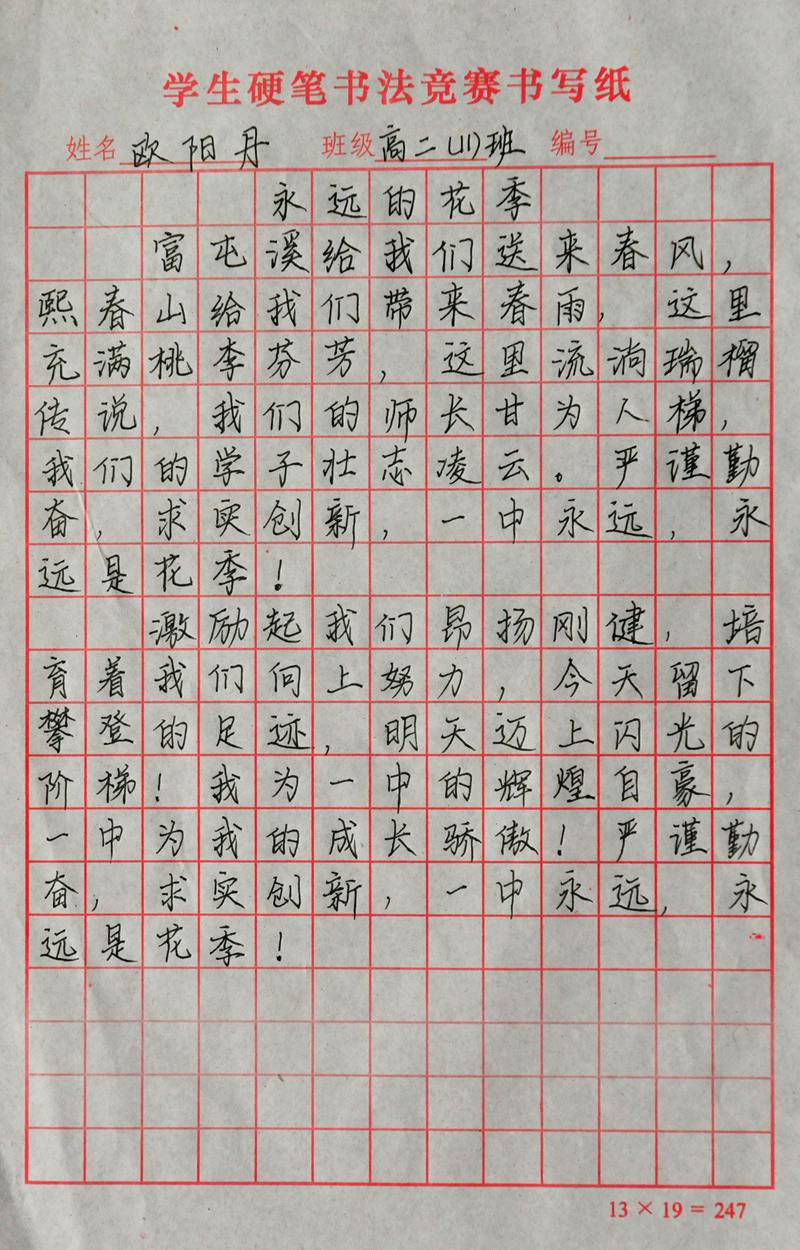 学生硬笔书法竞赛书写纸
姓名 欧阳丹 班级 高二(11)班 编号
永远的花季
富屯溪给我们送来春风，
熙春山给我们带来春雨，这里
充满桃李芬芳，这里流淌瑞榴
传说，我们的师长甘为人梯，
我们的学子壮志凌云。严谨勤
奋，求实创新，一中永远，永
远是花季！
激励起我们昂扬刚健，培
育着我们向上努力，今天留下
攀登的足迹，明天迈上闪光的
阶梯！我为一中的辉煌自豪，
一中为我的成长骄傲！严谨勤
奋，求实创新，一中永远，永
远是花季！
13 × 19 = 247